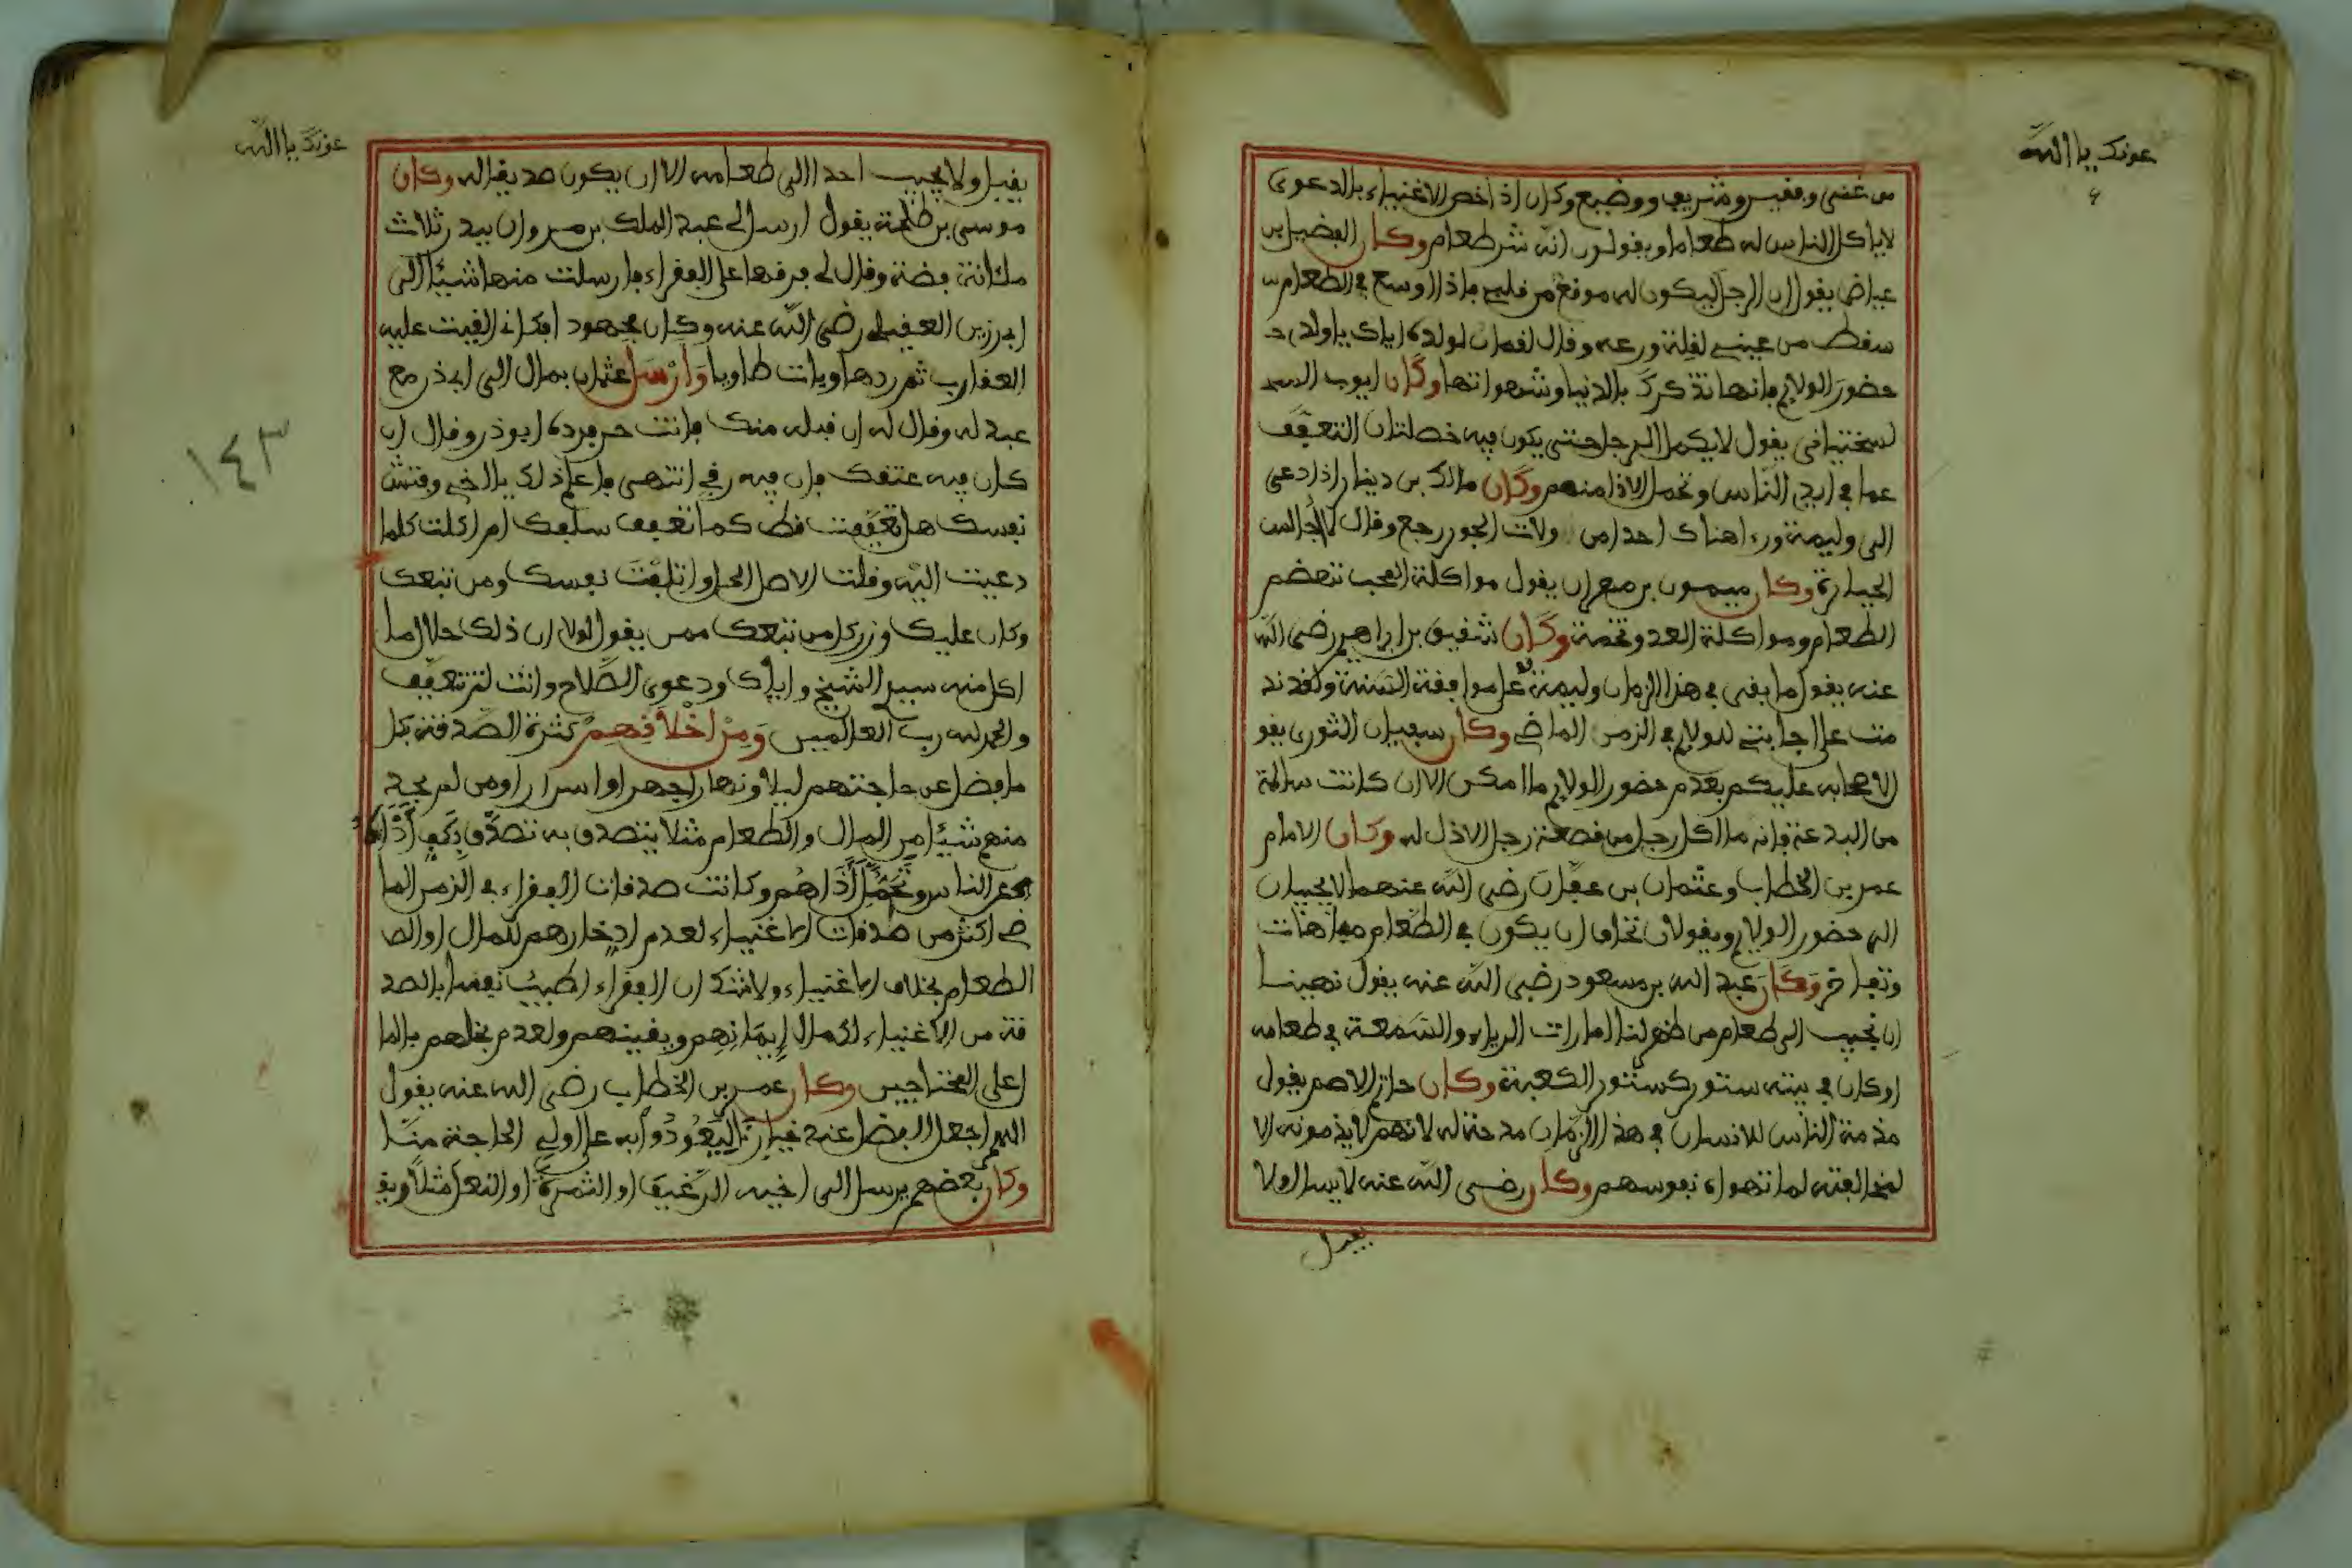 عونك يا الله
من غني وفقير وشريف ووضيع وكان اذا خص الاغنياء بالدعوى
لا ياكل الناس له طعاما ويقولون انه شر طعام وكان الفضيل بن
عياض يقول ان الرجل ليكون له موقع من قلبي فاذا اوسع في الطعام
سقط من عيني لقلة ورعه وقال لقمان لولده اياك يا ولدي
حضور الولايم فانها تذكرك بالدنيا وشهواتها وكان ايوب السـ
لسختياني يقول لا يكمل الرجل حتى يكون فيه خصلتان التعفف
عما في ايدي الناس وتحمل الاذا منهم وكان مالك بن دينار اذا دعي
الى وليمة وراء هناك احدا من ولات الجور رجع وقال لا اجالس
الجبابرة وكان ميمون بن مهران يقول مواكلة المحب تهضم
الطعام ومواكلة العدو تخمة وكان شقيق بن ابراهيم رضي الله
عنه يقول ما بقى في هذا الزمان وليمة على موافقة السنة ولقد ند
مت على اجابتي للولايم في الزمن الماضي وكان سفيان الثوري يقو
لاصحابه عليكم بعدم حضور الولايم ما امكن الا ان كانت سالمة
من البدعة فانه ما اكل رجل من قصعة رجل الا ذل له وكان الامام
عمر بن الخطاب وعثمان بن عفان رضي الله عنهما لا يجيبان
الى حضور الولايم ويقولان نخاف ان يكون في الطعام مباهات
وتفاخر وكان عبد الله بن مسعود رضي الله عنه يقول نهينا
ان نجيب الى طعام من ظهر لنا امارات الرياء والسمعة في طعامه
او كان في بيته ستور كستور الكعبة وكان حاتم الاصم يقول
مذمة الناس للانسان في هذا الزمان مدحة له لانهم لا يذمونه الا
لمخالفته لما تهواه نفوسهم وكان رضي الله عنه لا يسال ولا
يقبل
عونك يا الله
١٤٣
يقبل ولا يجيب احدا الى طعامه الا ان يكون صديقا له وكان
موسى بن طلحة يقول ارسل لي عبد الملك بن مروان بيدر ثلاث
مائة فضة وقال لي فرقها على الفقراء فارسلت منها شيئا الى
ابي رزين العقيلي رضي الله عنه وكان مجهود افكاني القيت عليه
العقارب ثم ردها وبات طاويا وارسل عثمان بمال الى ابي ذر مع
عبد له وقال له ان قبله منك فانت حر فرده ابو ذر وقال ان
كان فيه عتقك فان فيه رقي انتهى فاعلم ذلك يا اخي وفتش
نفسك هل تعففت قط كما تعفف سلفك ام اكلت كلما
دعيت اليه وقلت الاصل الحل واتلفت نفسك ومن تبعك
وكان عليك وزر كل من تبعك ممن يقول لولا ان ذلك حلال ما
اكل منه سيدي الشيخ واياك ودعوى الصلاح وانت لم تتعفف
والحمد لله رب العالمين ومن اخلاقهم كثرة الصدقة بكل
ما فضل عن حاجتهم ليلا ونهارا جهرا واسرارا ومن لم يجد
منهم شيئا من المال والطعام مثلا يتصدق به تصدق بكف اذاه
عن الناس وتحمل اذاهم وكانت صدقات الفقراء في الزمن الما
ضي اكثر من صدقات الاغنياء لعدم ادخارهم للمال او الط
الطعام بخلاف الاغنياء ولا شك ان الفقراء اطيب نفسا بالصد
قة من الاغنياء لكمال ايمانهم ويقينهم ولعدم بخلهم بالما
ل على المحتاجين وكان عمر بن الخطاب رضي الله عنه يقول
اللهم اجعل الفضل عند خيارنا ليعودوا به على اولي الحاجة منا
وكان بعضهم يرسل الى اخيه الرغيف او الثمرة او النعل مثلا ويقـ